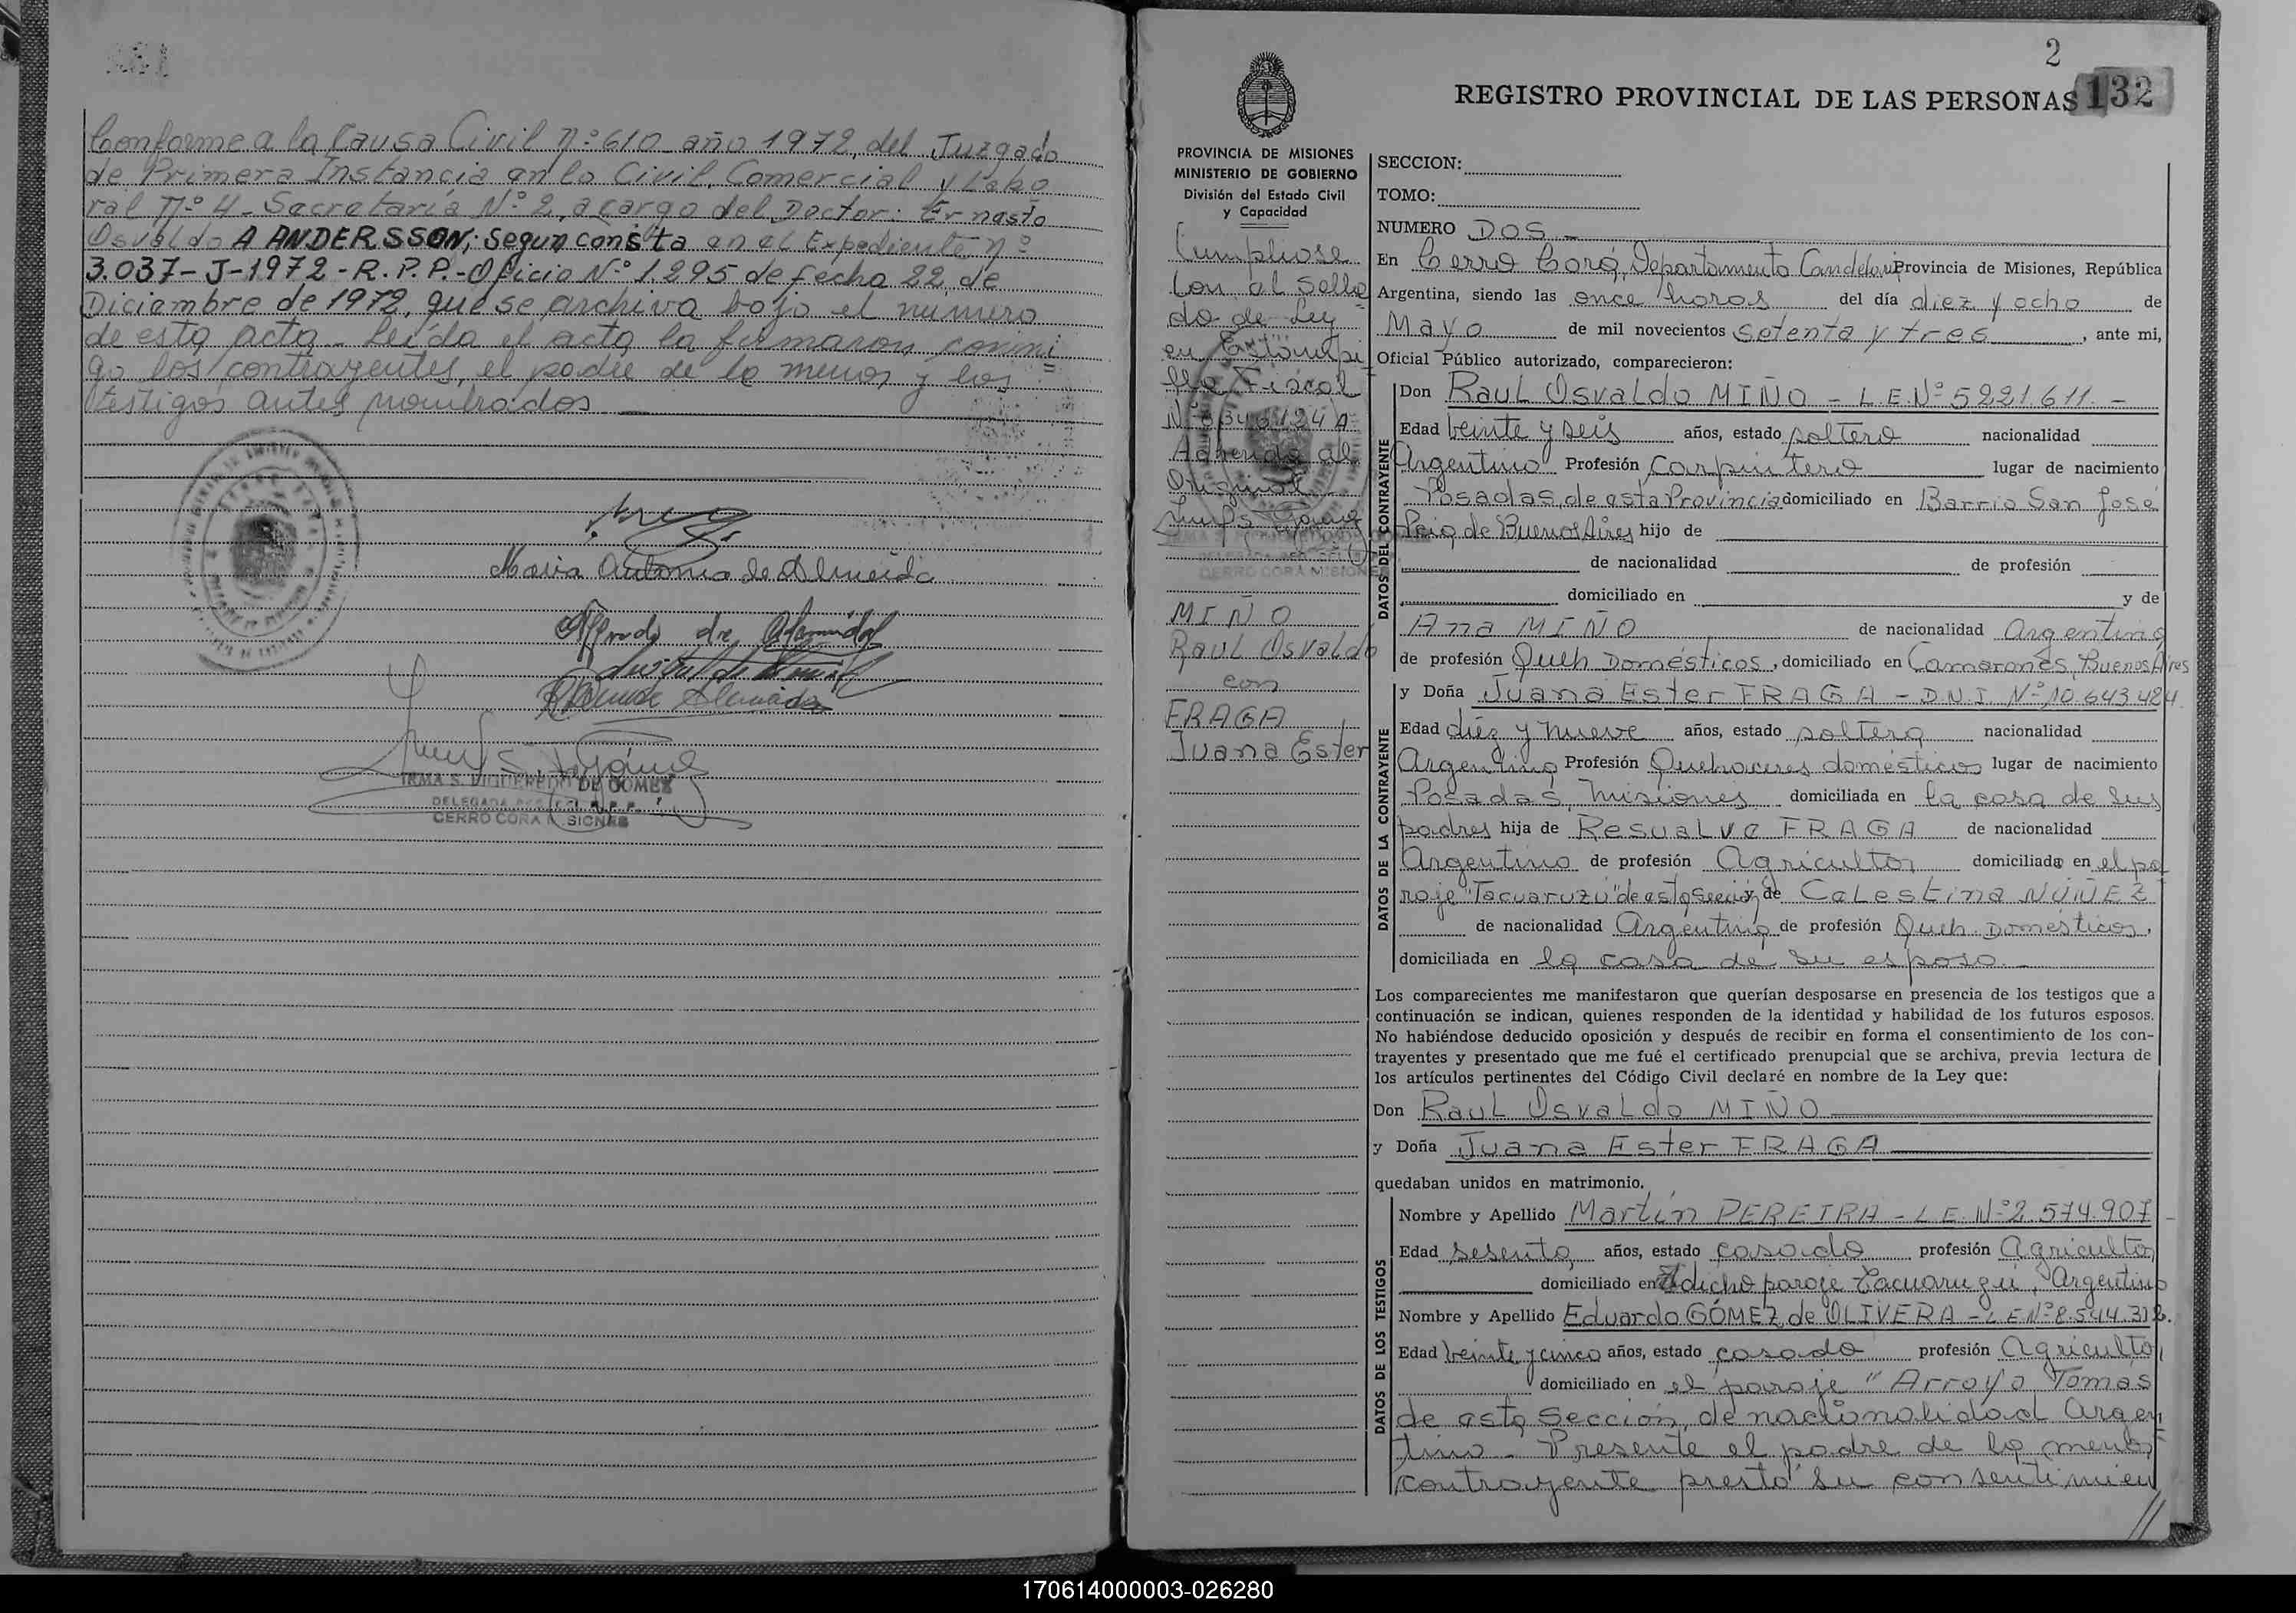 Conforme a la Causa Civil Nº 610 año 1972, del Juzgado
de Primera Instancia en lo Civil, Comercial y Labo
ral Nº 4 - Secretaría Nº 2, a cargo del Doctor: Ernesto
Osvaldo A ANDERSSON; Segun consta en el Expediente Nº
3.037-J-1972-R.P.P.-Oficio Nº 1.295 de fecha 22 de
Diciembre de 1972, que se archiva bajo el numero
de esta acta - Leída el acta la firmaron conmi
go los contrayentes, el padre de la menor y los
testigos antes nombrados
Maria Antonia de Almeida
Alfredo de Almeida
IRMA S. FIGUEREDO DE GOMEZ
CERRO CORA MISIONES
2
132
REGISTRO PROVINCIAL DE LAS PERSONAS
PROVINCIA DE MISIONES
MINISTERIO DE GOBIERNO
División del Estado Civil
y Capacidad
Cumpliose
con el Sella
do de Ley
en Estampi
lla Fiscal
Adherida al
Original
CERRO CORA MISIONES
MIÑO
Raul Osvaldo
con
FRAGA
Juana Ester
SECCION:
TOMO:
NUMERO DOS -
En Cerro Corá, Departamento Candelaria Provincia de Misiones, República
Argentina, siendo las once horas del día diez y ocho de
Mayo de mil novecientos setenta y tres, ante mi,
Oficial Público autorizado, comparecieron:
DATOS DEL CONTRAYENTE
Don Raul Osvaldo MIÑO - L.E.Nº 5221.611. -
Edad veinte y seis años, estado soltero nacionalidad
Argentino Profesión Carpintero lugar de nacimiento
Posadas, de esta Provincia domiciliado en Barrio San José
Pcia de Buenos Aires hijo de
de nacionalidad de profesión
domiciliado en y de
Ana MIÑO de nacionalidad Argentina
de profesión Queh Domésticos, domiciliado en Camarones, Buenos Aires
DATOS DE LA CONTRAYENTE
y Doña Juana Ester FRAGA - D.N.I. Nº 10.643.484
Edad diez y nueve años, estado soltera nacionalidad
Argentina Profesión Quehaceres domésticos lugar de nacimiento
Posadas, Misiones domiciliada en la casa de sus
padres hija de Resualve FRAGA de nacionalidad
Argentino de profesión Agricultor domiciliada en el pa
raje "Tacuaruzú" de esta Sección y de Celestina NUÑEZ
de nacionalidad Argentina de profesión Queh Domésticos,
domiciliada en la casa de su esposo. -
Los comparecientes me manifestaron que querían desposarse en presencia de los testigos que a
continuación se indican, quienes responden de la identidad y habilidad de los futuros esposos.
No habiéndose deducido oposición y después de recibir en forma el consentimiento de los con-
trayentes y presentado que me fué el certificado prenupcial que se archiva, previa lectura de
los artículos pertinentes del Código Civil declaré en nombre de la Ley que:
Don Raul Osvaldo MIÑO
y Doña Juana Ester FRAGA
quedaban unidos en matrimonio.
DATOS DE LOS TESTIGOS
Nombre y Apellido Martín PEREIRA - L.E. Nº 2.574.907 -
Edad sesenta años, estado casado profesión Agricultor
domiciliado en dicho paraje Tacuaruzú, Argentino
Nombre y Apellido Eduardo GÓMEZ de OLIVERA - L E Nº 8.544.318.
Edad veinte y cinco años, estado casado profesión Agricultor
domiciliado en el paraje "Arroyo Tomás
de esta Sección, de nacionalidad Argen
tino - Presente el padre de la menor
contrayente prestó su consentimien
//
170614000003-026280